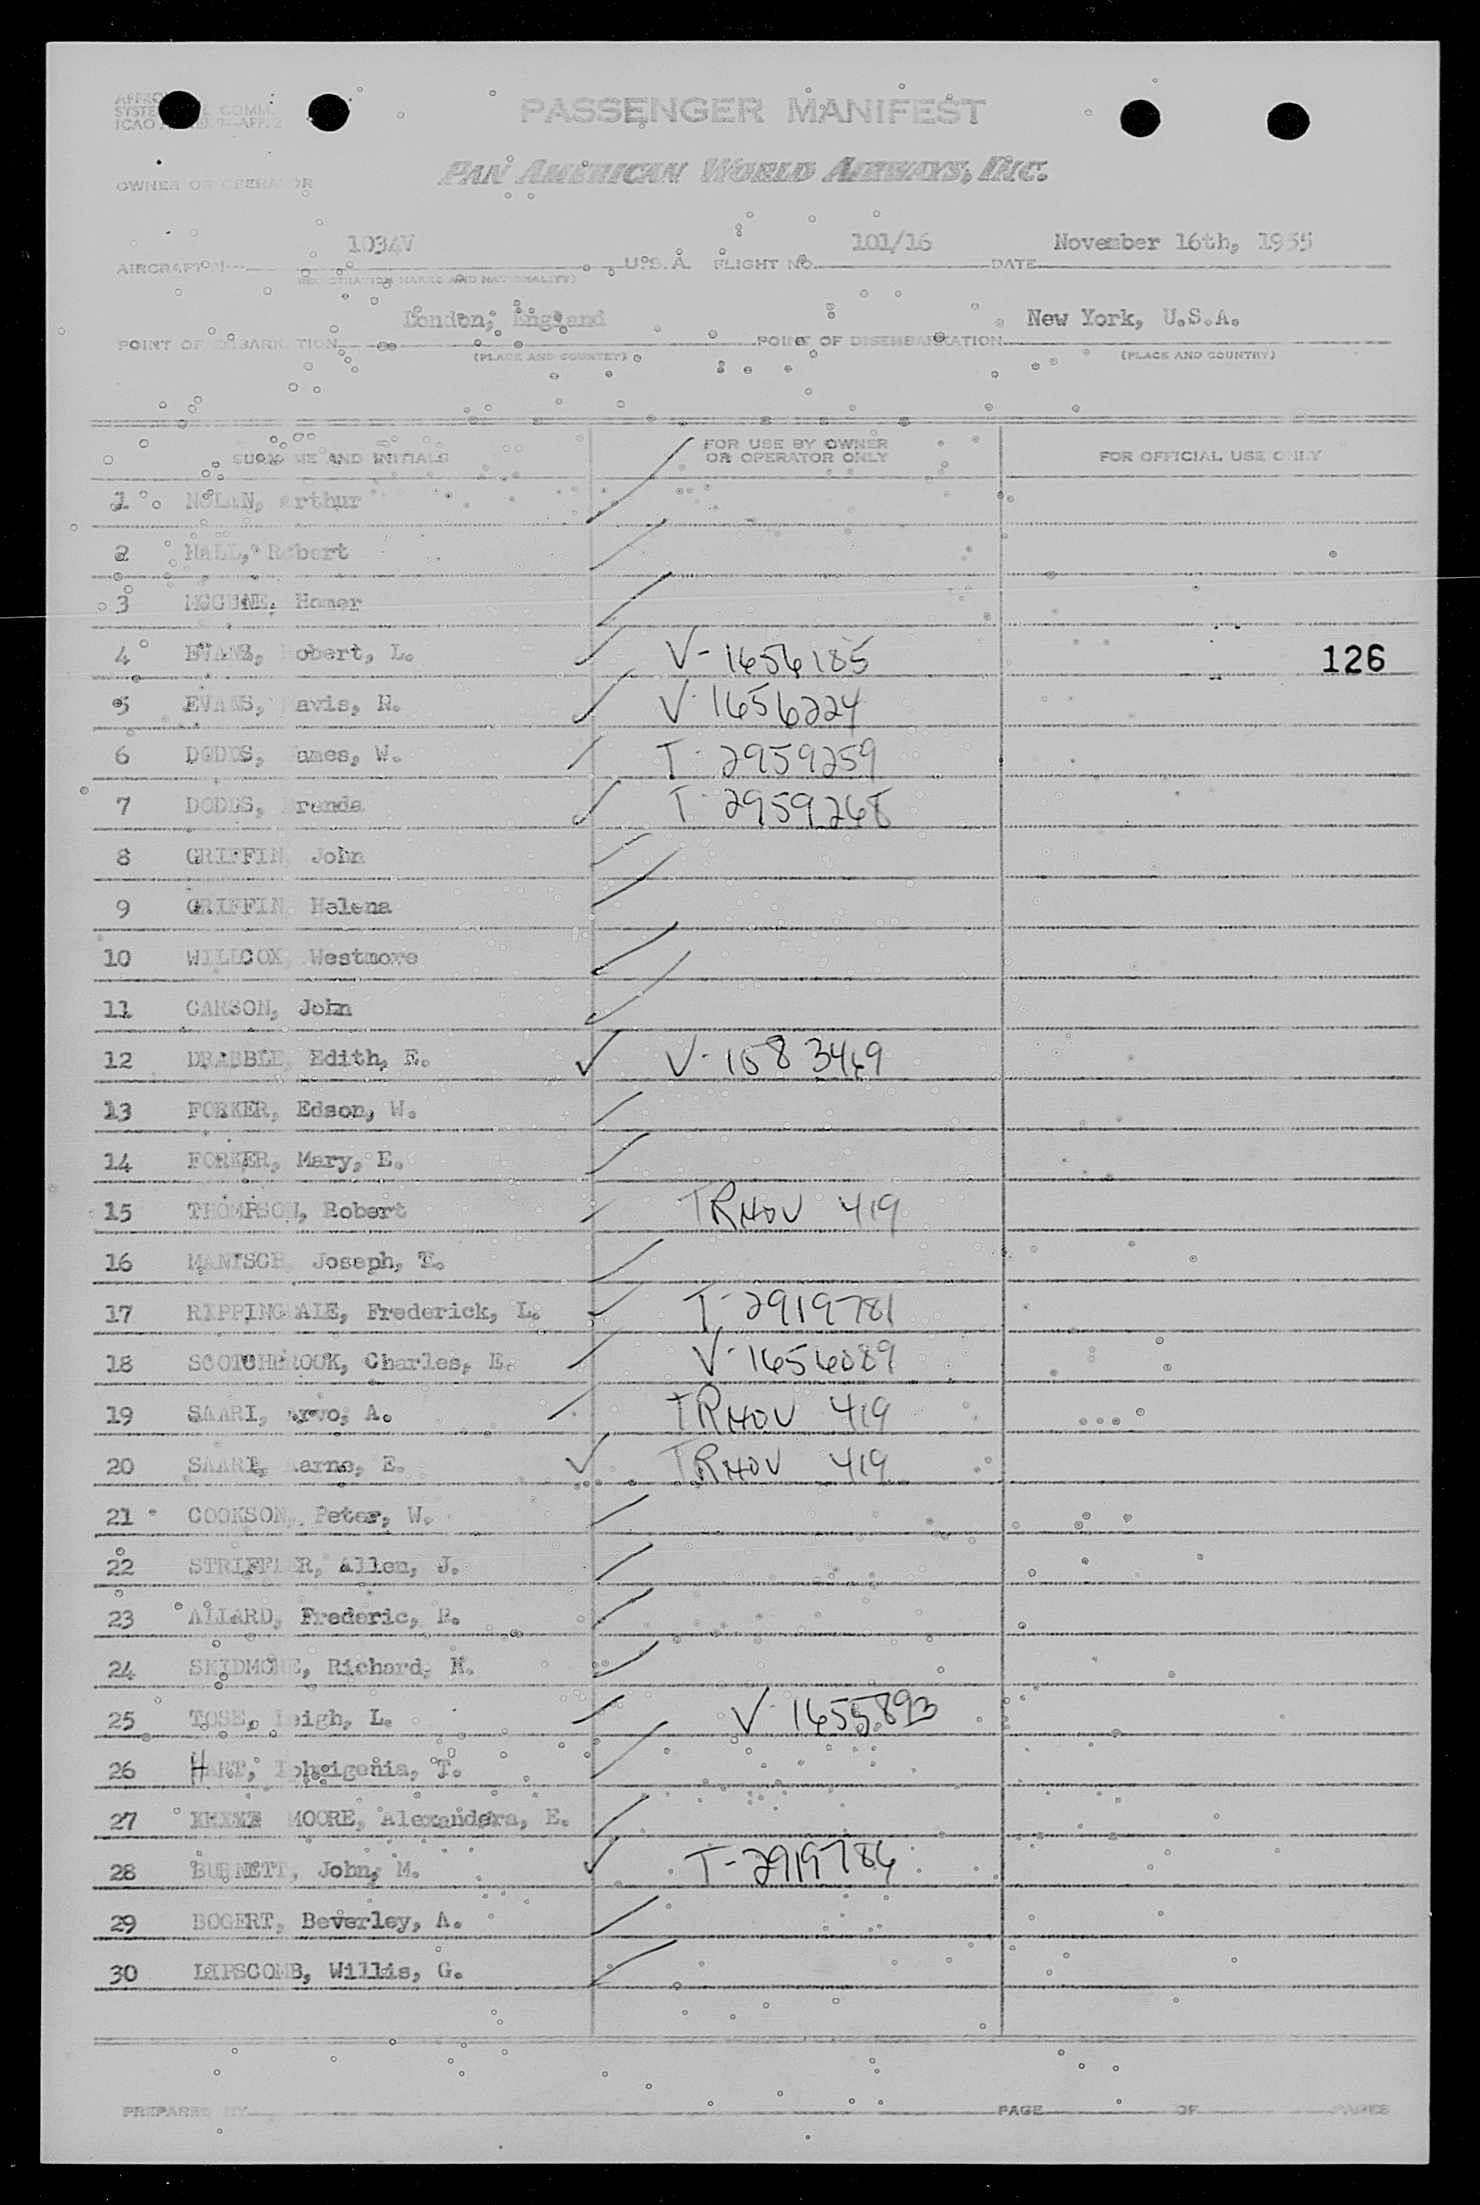 PASSENGER MANIFEST
PAN AMERICAN WORLD AIRWAYS, INC.
OWNER OR OPERATOR
1034V 101/16 November 16th, 1955
AIRCRAFT U.S.A. FLIGHT NO. DATE
(REGISTRATION MARKS AND NATIONALITY)
London, England New York, U.S.A.
POINT OF EMBARKATION POINT OF DISEMBARKATION
(PLACE AND COUNTRY) (PLACE AND COUNTRY)
SURNAME AND INITIALS FOR USE BY OWNER OR OPERATOR ONLY FOR OFFICIAL USE ONLY
1 NOLAN, Arthur
2 HALL, Robert
3 Homer
4 EVANS, Robert, L. V-1656185 126
5 EVANS, Mavis, N. V-1656224
6 DODDS, James, W. T-2959259
7 DODDS, Brenda T-2959268
8 GRIFFIN, John
9 GRIFFIN, Helena
10 WILLCOX, Westmore
11 CARSON, John
12 DRABBLE, Edith, E. V-1583469
13 FORKER, Edson, W.
14 FORKER, Mary, E.
15 THOMPSON, Robert TRHOV 419
16 Joseph, T.
17 RIPPINGDALE, Frederick, L. T-2919781
18 SCOTCHBROOK, Charles, E. V-1656089
19 SAARI, Arvo, A. TRHOV 419
20 SAARI, Aarne, E. TRHOV 419
21 COOKSON, Peter, W.
22 STRIFFLER, Allen, J.
23 ALLARD, Frederic, R.
24 SKIDMORE, Richard, H.
25 TOSE, Leigh, L. V-1655893
26 HART, Iphigenia, T.
27 MOORE, Alexandera, E.
28 BURNETT, John, M. T-2919786
29 BOGERT, Beverley, A.
30 LIPSCOMB, Willis, G.
PREPARED BY PAGE OF PAGES